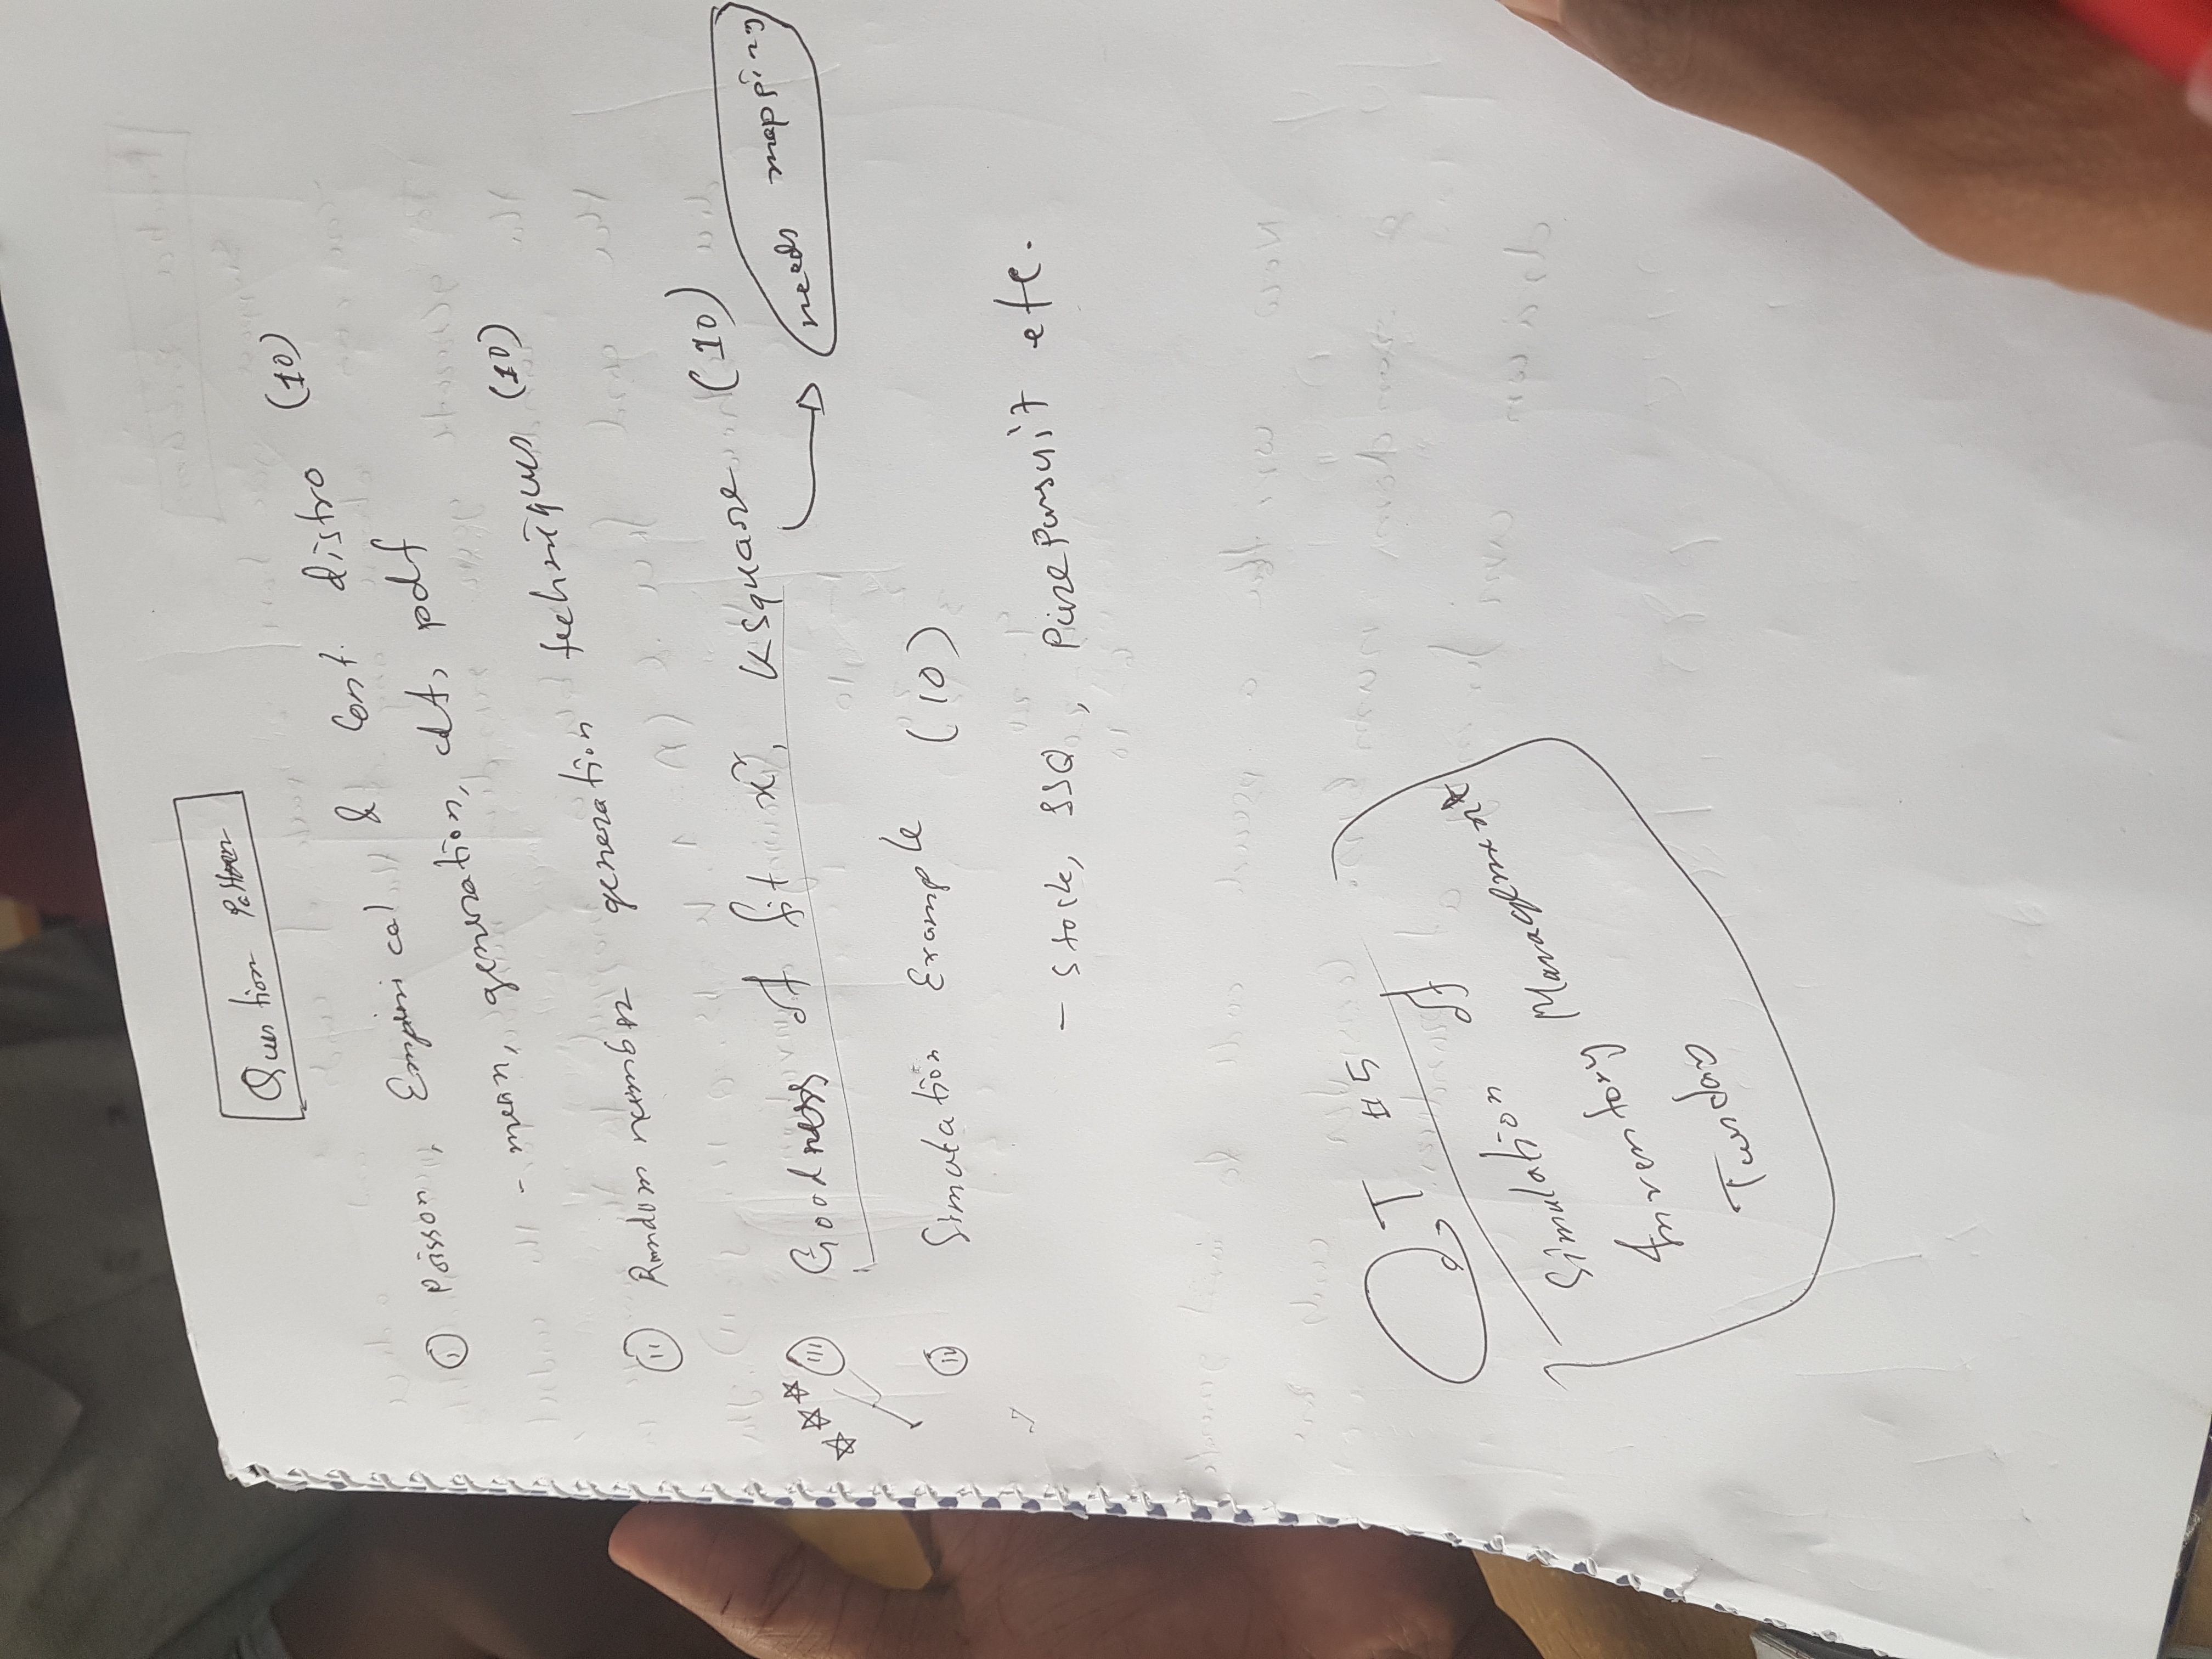 Question Pattern
(i) Poisson, Empirical & Cont. distro (10)
- mean, generation, cdf, pdf
(ii) Random number generation techniques (10)
(iii) Goodness of fit x², K square (10)
needs mapping
(iv) Simulation Example (10)
- Stock, SSQ, Pure Pursuit etc.
CT #5
Simulation of
Inventory Management
Tuesday